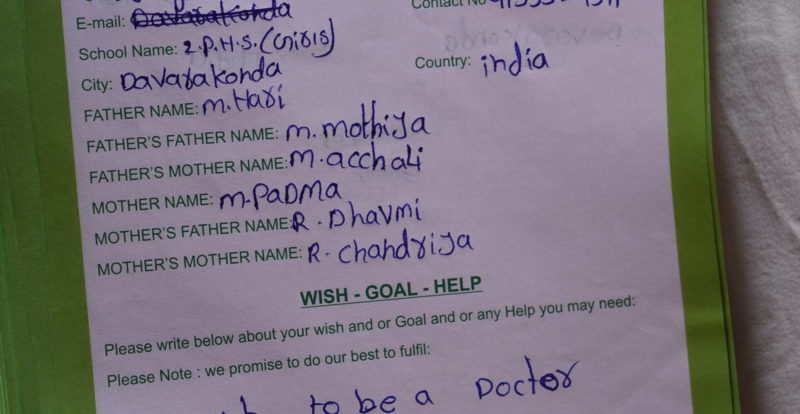 E-mail: Davarakonda
Contact No
School Name: Z.P.H.S. (Girls)
City: Davarakonda
Country: india
FATHER NAME: m. Hari
FATHER'S FATHER NAME: m. mothiya
FATHER'S MOTHER NAME: m. acchali
MOTHER NAME: m. PaDMA
MOTHER'S FATHER NAME: R. Dhavmi
MOTHER'S MOTHER NAME: R. chandriya
WISH - GOAL - HELP
Please write below about your wish and or Goal and or any Help you may need:
Please Note : we promise to do our best to fulfil:
to be a Doctor